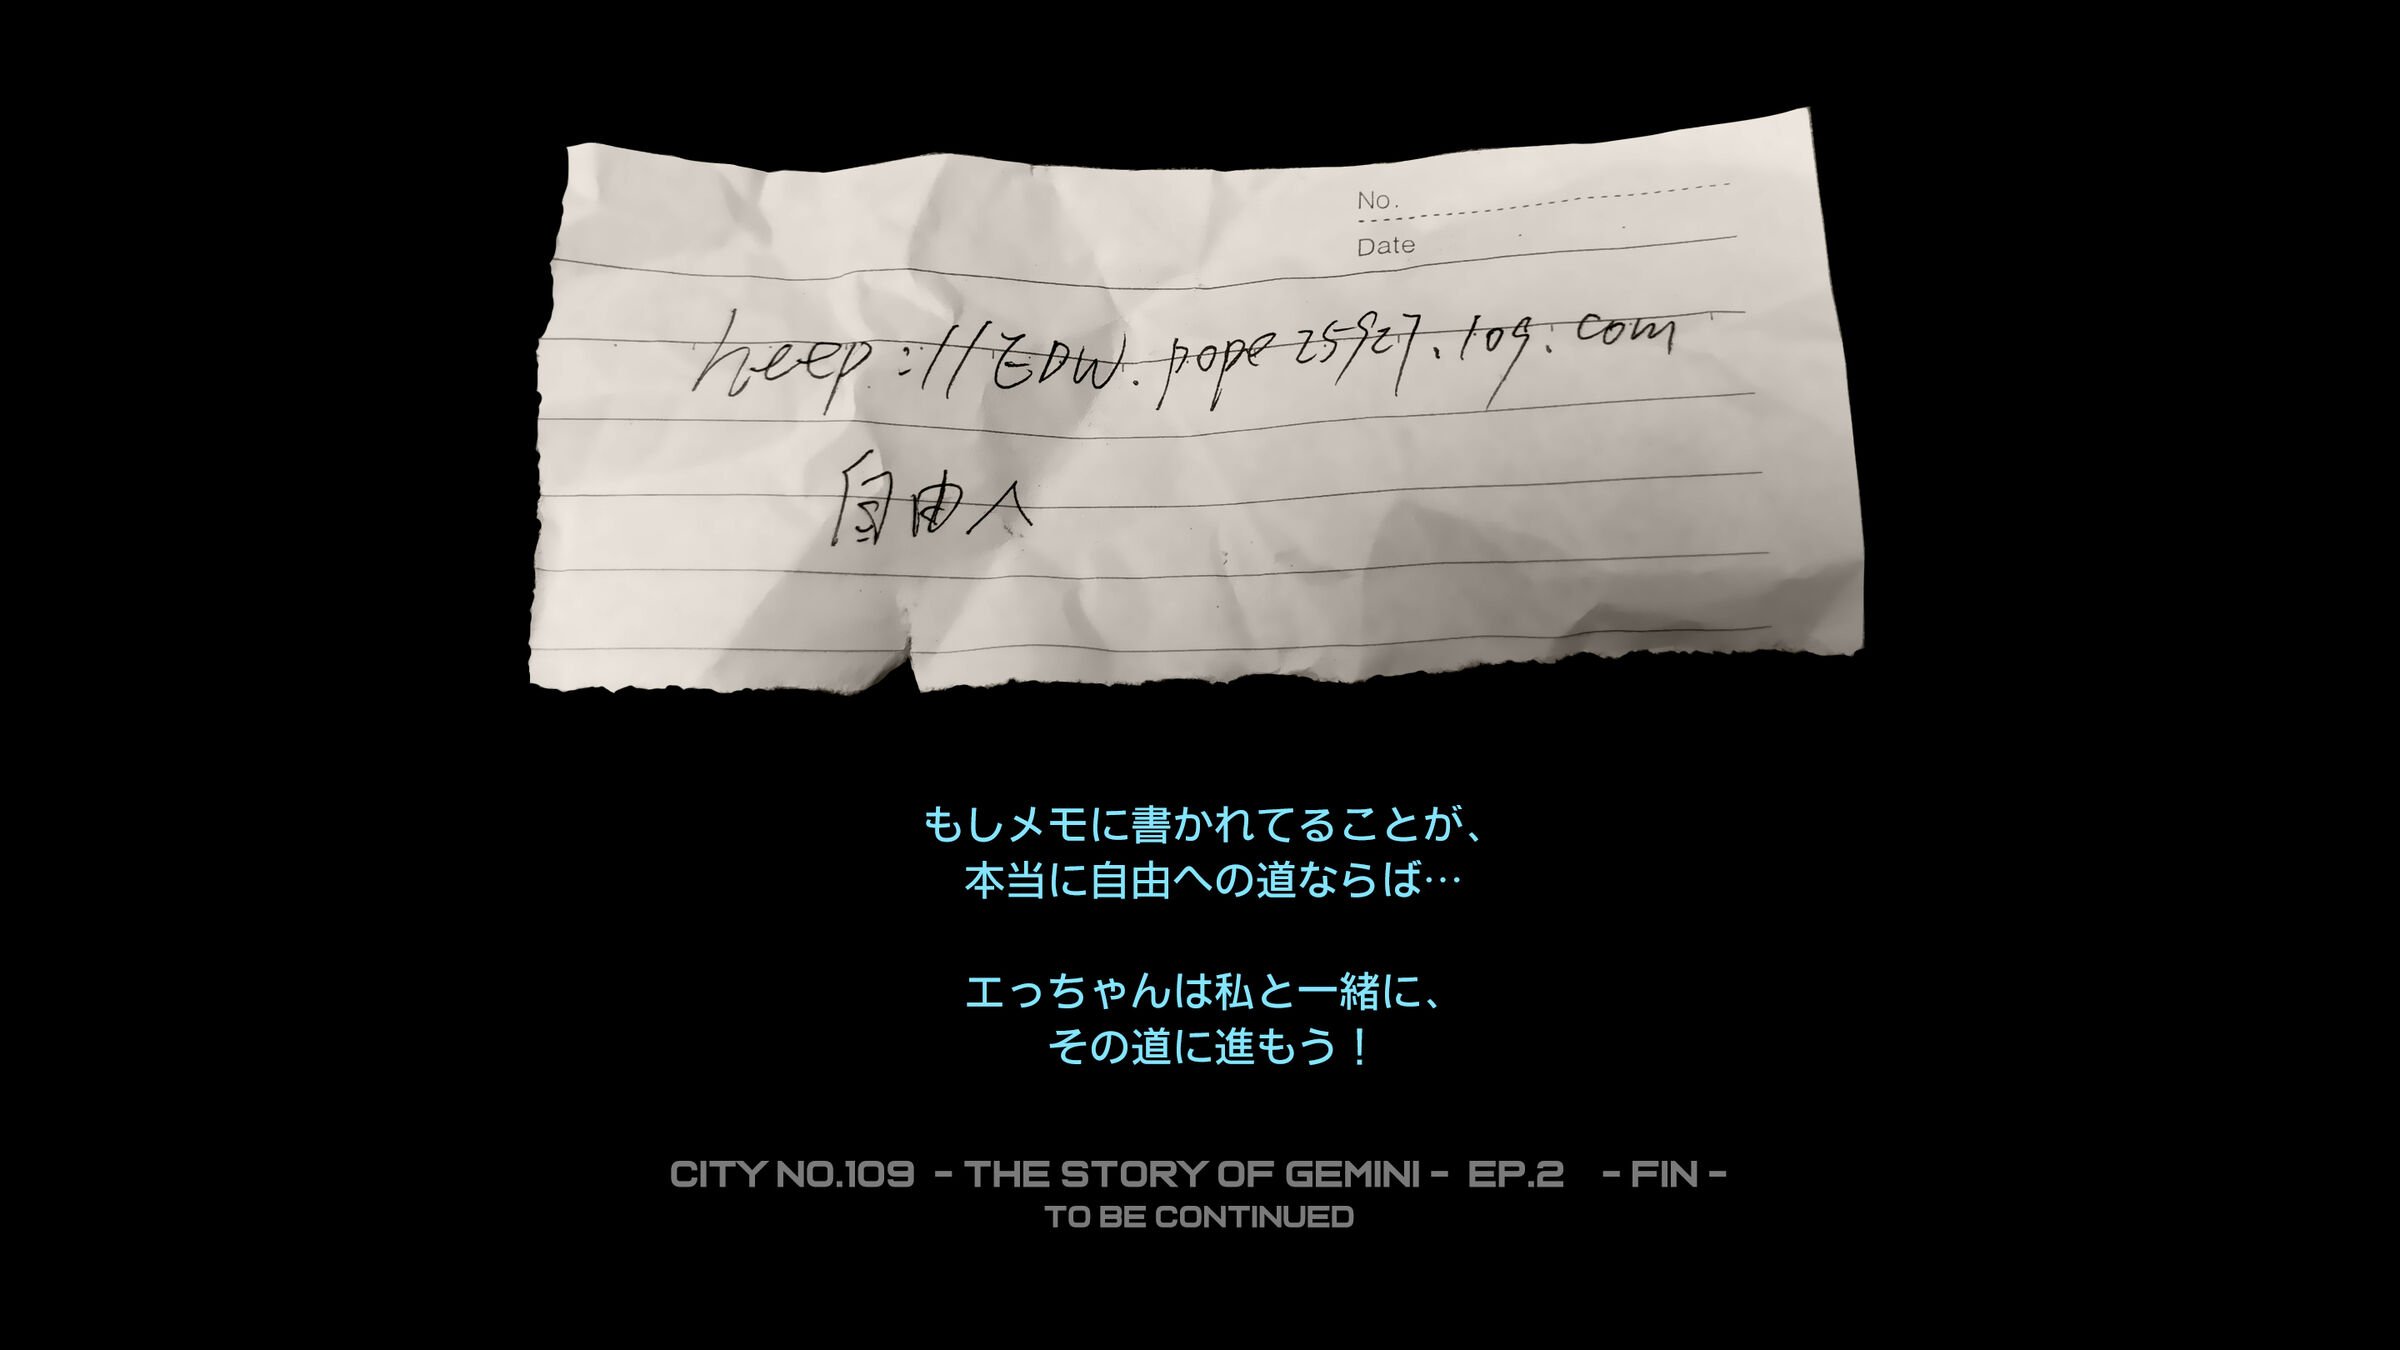 No.
Date
heep://EDW.pope25927.log.com
自由人
もしメモに書かれてることが、
本当に自由への道ならば…
エっちゃんは私と一緒に、
その道に進もう！
CITY NO.109 - THE STORY OF GEMINI - EP.2 - FIN -
TO BE CONTINUED